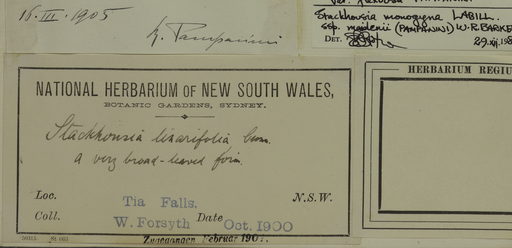 16 III. 1905
R. Pampanini
Stackhousia monogyna LABILL.
ssp. maidenii (PAMPANINI) W.R.BARKER
DET. 29.XII.198
HERBARIUM REGIU
NATIONAL HERBARIUM OF NEW SOUTH WALES,
BOTANIC GARDENS, SYDNEY.
Stackhousia linarifolia Cunn.
a very broad-leaved form.
Loc. Tia Falls, N.S.W.
Coll. W. Forsyth Date Oct. 1900
Zugegangen Februar 1901.